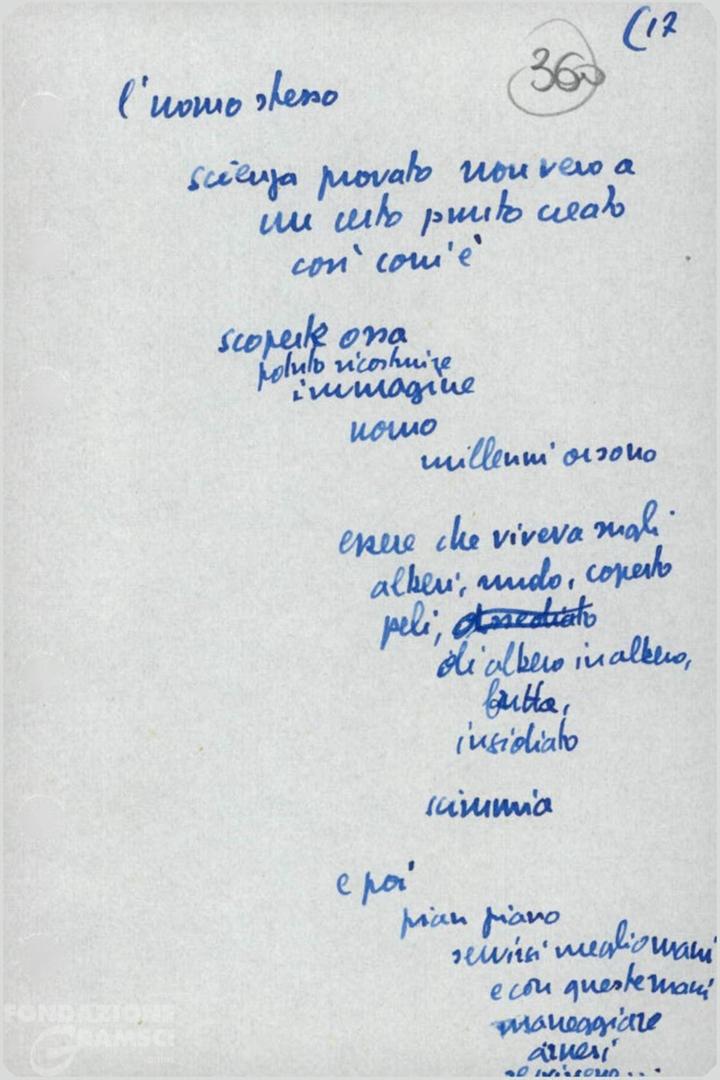 (17
360
l'uomo stesso
scienza provato non vero a
un certo punto creato
così com'è
scoperte ossa
potuto ricostruire
immagine
uomo
millenni orsono
essere che viveva sugli
alberi, nudo, coperto
peli, assediato
di albero in albero,
frutta,
insidiato
scimmia
e poi
pian piano
servirsi meglio mani
e con queste mani
maneggiare
arnesi
FONDAZIONE
GRAMSCI